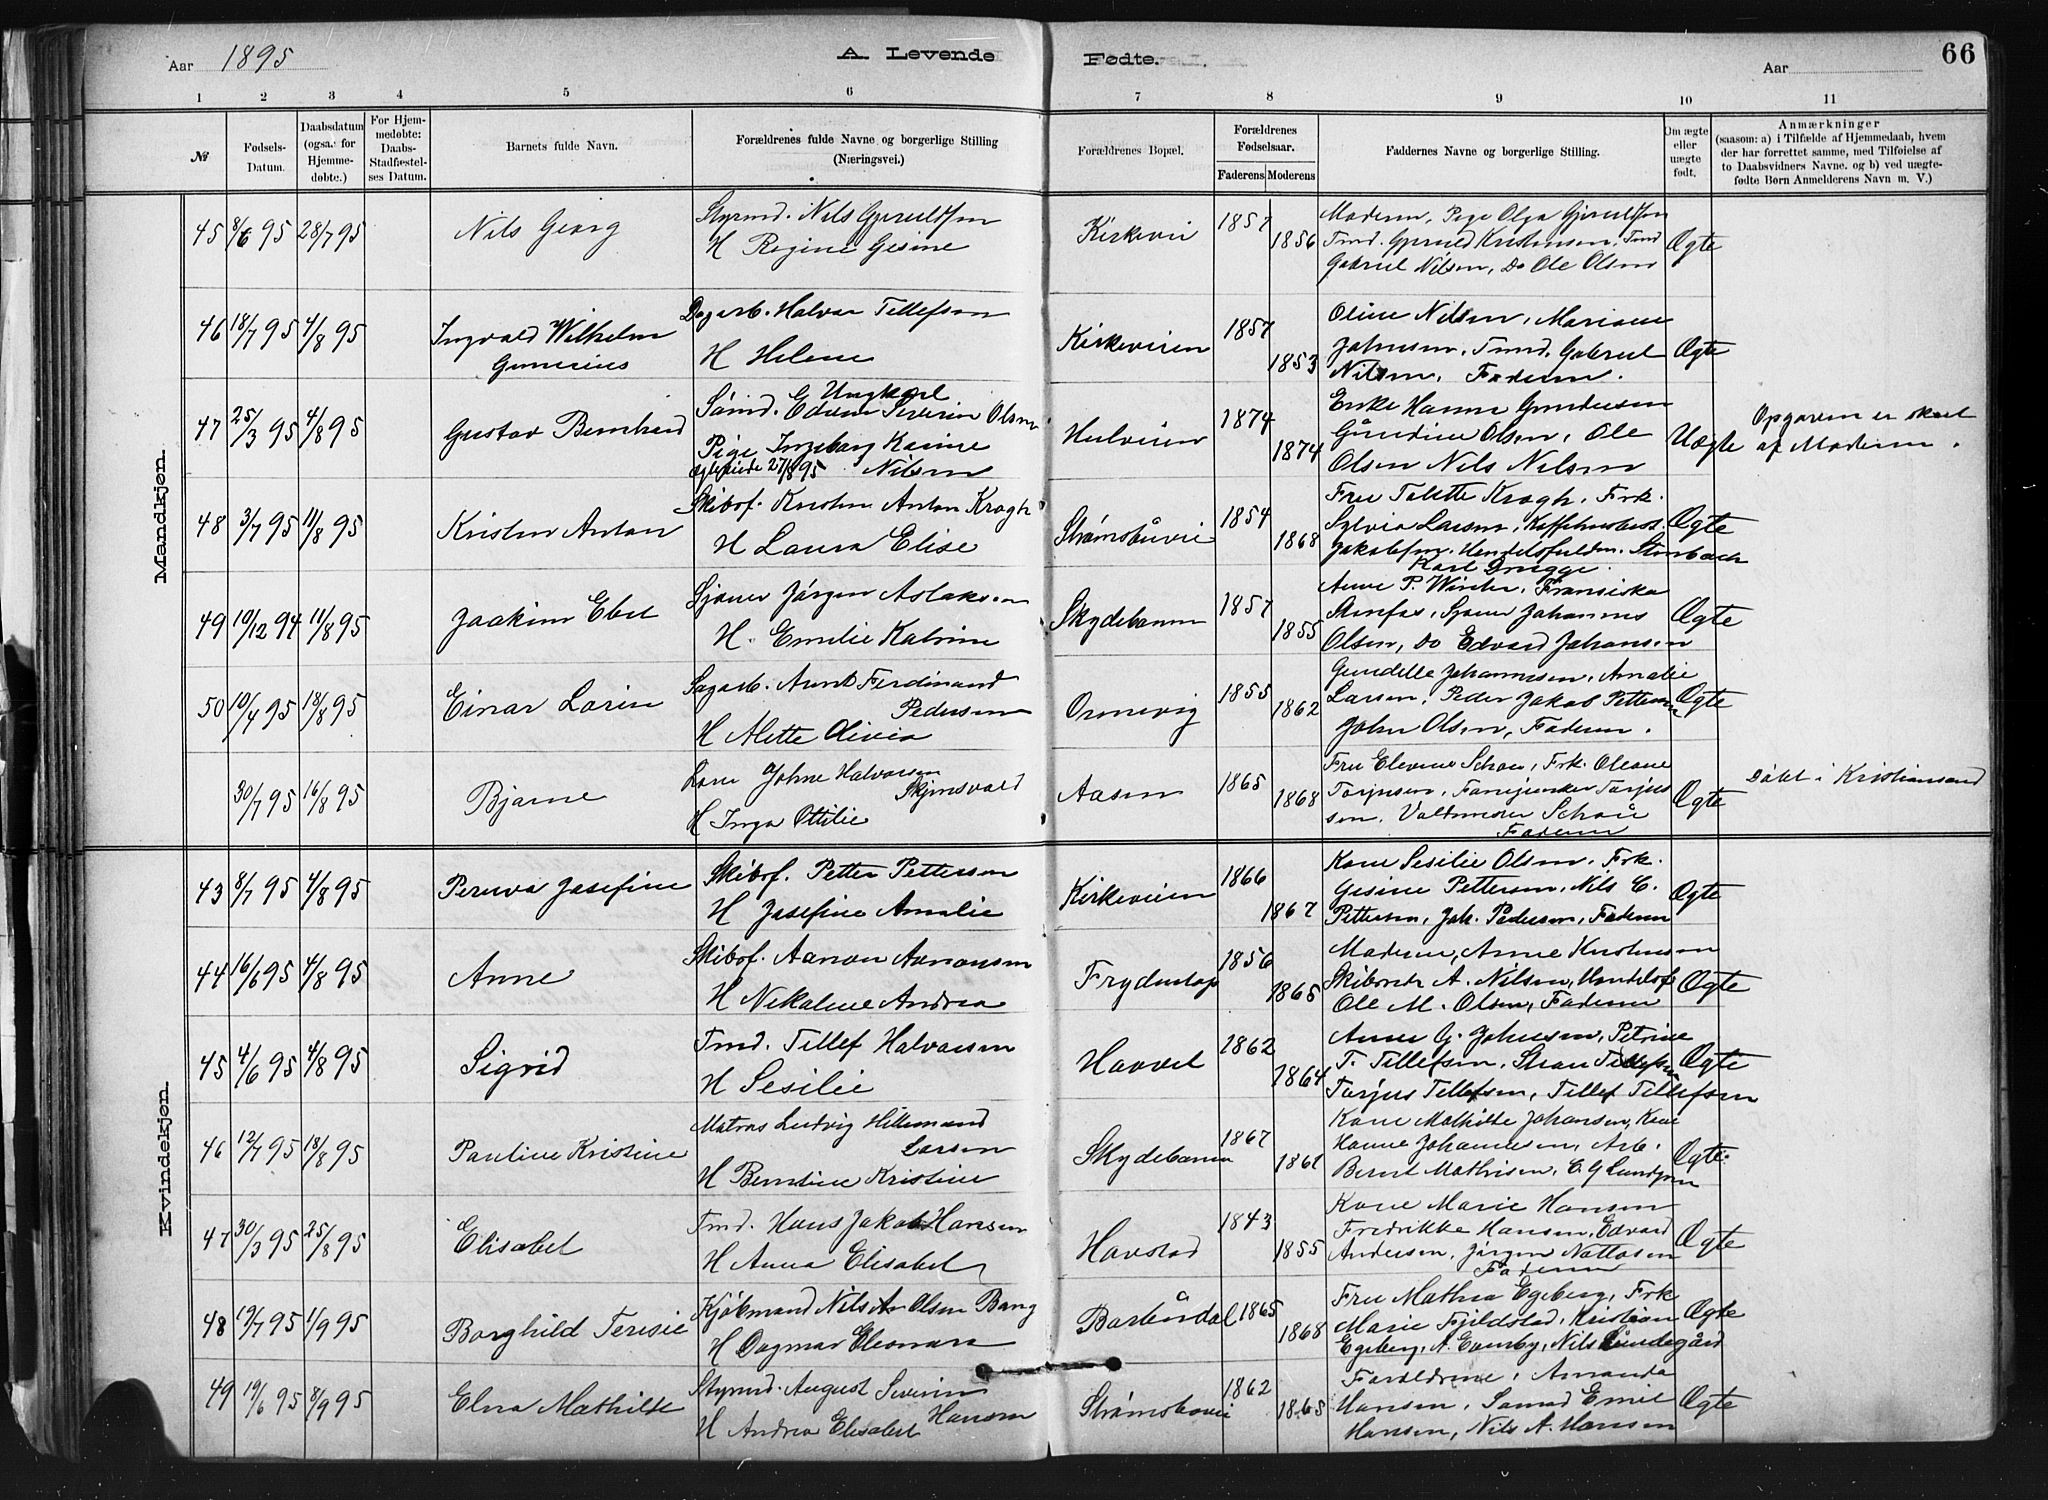 Aar 1895
A. Levende
Fødte.
Aar
66
1 2 3 4 5 6 7 8 9 10 11
№
Fødsels-Datum.
Daabsdatum (ogsaa for Hjemme-døbte.)
For Hjem-medøbte: Daabs-Stadfæstel-ses Datum.
Barnets fulde Navn.
Forældrenes fulde Navne og borgerlige Stilling (Næringsvei.)
Forældrenes Bopæl.
Forældrenes Fødselsaar.
Faderens Moderens
Faddernes Navne og borgerlige Stilling.
Om ægte eller uægte født.
Anmærkninger
(saasom: a) i Tilfælde af Hjemmedaab, hvem
der har forrettet samme, med Tilføielse af
to Daabsvidners Navne. og b) ved uægte-
fødte Børn Anmelderens Navn m. V.)
Mandkjøn.
45 8/6 95 28/7 95 Nils Georg
Styrmd. Nils Gjeruldsen
H Regine Gesine
Kirkevei 1857 1856
Moderen, Pige Olga Gjeruldsen
Tmd. Gjeruld Kristensen, Tmd
Gabriel Nilsen, Do Ole Olsen
Ægte
46 18/7 95 4/8 95 Ingvald Wilhelm
Gunerius
Dagarb. Halvor Tellefsen
H Helene
Kirkeveien 1857 1853
Oline Nilsen, Mariane
Johnsen, Tmd. Gabriel
Nilsen, Faderen.
Ægte
47 25/3 95 4/8 95 Gustav Bernhard
Ungkarl
Sømd. Edvin Severin Olsen
Pige Ingeborg Karine
Nilsen
27/8 95
Hulveien 1874 1874
Enke Hanna Gundersen
Gundine Olsen, Ole
Olsen Nils Nilsen
Uægte
Opgaven er skeet
af Moderen.
48 3/7 95 11/8 95 Kristen Anton
Skibsf. Kristen Anton Krogh
H Laura Elise
Strømsbuvei 1854 1868
Fru Talette Krogh, Frk.
Sylvia Larsen,
Jakobsen, Handelsfuldm. Stenbach
Karl Drugge.
Ægte
49 10/12 94 11/8 95 Joakim Ebel
Sjømd Jørgen Aslaksen
H. Emilie Katrine
Skydebanen 1857 1855
Anne P. Winter, Fransiska
Stenfas, Sjømd Johannes
Olsen, Do Edvard Johansen
Ægte
50 10/4 95 18/8 95 Einar Lorin
Sagarb. Arnt Ferdinand
Pedersen
H Alette Olivia
Ormevig 1855 1862
Gunelle Johannesen, Amalie
Larsen, Peder Jakob Pettersen
John Olsen, Faderen.
Ægte
30/7 95 16/8 95 Bjarne
Johne Halvorsen
Skjønsvold
H Inga Ottilie
Aasen 1865 1868
Fru Elevine Schou, Frk. Oleane
Torjusen, Fanejunker Torjus
sen, Valdemar Schou
Faderen
Ægte
Døbt i Kristiansand
Kvindekjøn.
43 8/7 95 4/8 95 Peruva Josefine
Skibsf. Petter Pettersen
H Josefine Amalie
Kirkeveien 1866 1867
Kone Sesilie Olsen, Frk.
Gesine Pettersen, Nils C.
Pettersen, Joh. Pedersen, Faderen
Ægte
44 16/6 95 4/8 95 Anne
Skibsf. Aanon Aanonsen
H Nikoline Andrea
Frydenlop 1856 1865
Moderen, Anne Kristensen
Skibsreder A. Nilsen, Handelsf.
Ole M. Olsen, Faderen
Ægte
45 4/6 95 4/8 95 Sigrid
Tmd. Tellef Halvorsen
H Sesilie
Havvel 1862 1864
Anne G. Johnsen, Petrine
T. Tellefsen, Stian Tellefsen
Torjus Tellefsen, Tellef Tellefsen
Ægte
46 12/7 95 18/8 95 Pauline Kristine
Matros Ludvig Hillemand
Larsen
H Berntine Kristine
Skydebanen 1867 1861
Kone Mathilde Johansen, Kone
Hanne Johannesen, Arb.
Bernt Mathisen, C. G Lundgren
Ægte
47 30/3 95 25/8 95 Elisabet
Tmd. Hans Jakob Hansen
H Anna Elisabet
Havstad 1843 1855
Kone Marie Hansen
Fredrikke Hansen, Edvard
Andersen, Jørgen Nattosen
Faderen
Ægte
48 19/7 95 1/9 95 Borghild Teresie
Kjøbmand Nils A Olsen Bang
H Dagmar Eleonora
Barbudal 1865 1868
Fru Mathea Egeberg, Frk
Marie Fjeldstad, Kristian
Egeberg, A. Evensby, Nils Lundegård
Ægte
49 19/6 95 8/9 95 Elna Mathilde
Styrmd. August Severin
Hansen
H Andrea Elisabet
Strømsbovei 1862 1865
Forældrene, Amanda
Hansen, Sømd Emil
Hansen, Nils A. Hansen
Ægte